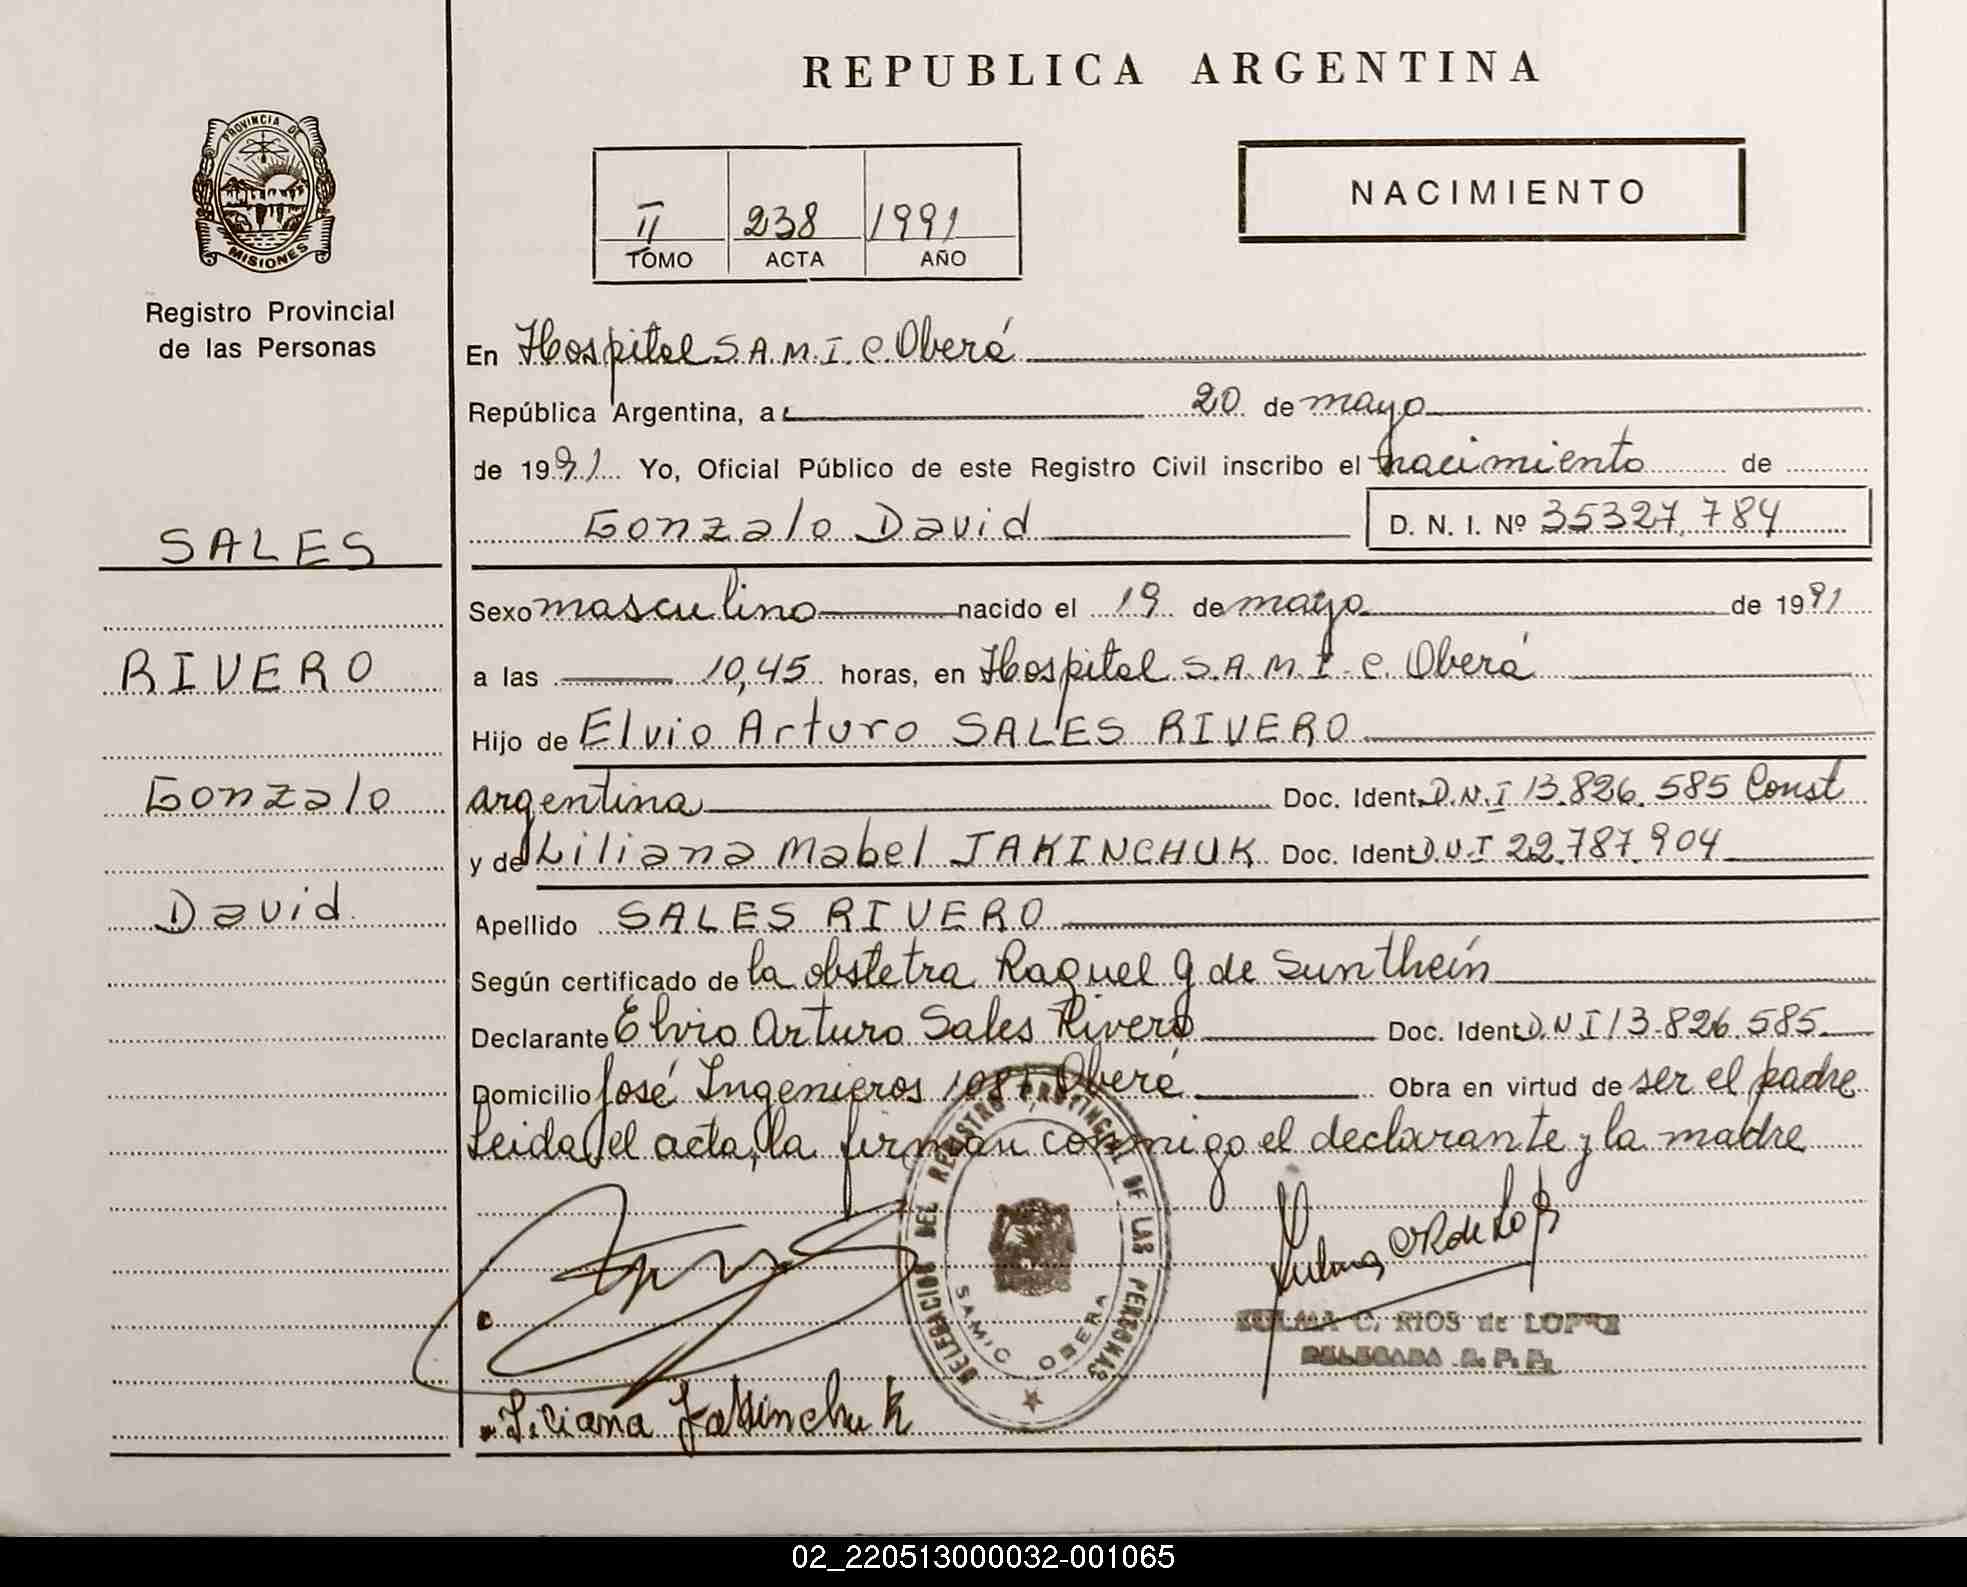 REPUBLICA ARGENTINA
PROVINCIA DE
MISIONES
Registro Provincial
de las Personas
II 238 1991
TOMO ACTA AÑO
NACIMIENTO
En Hospital S.A.M.I.C Oberá
República Argentina, a 20 de mayo
de 1991 Yo, Oficial Público de este Registro Civil inscribo el nacimiento de
Gonzalo David D. N. I. Nº 35327.784
SALES
RIVERO
Gonzalo
David
Sexo masculino nacido el 19 de mayo de 1991
a las 10,45 horas, en Hospital S.A.M.I.C. Oberá
Hijo de Elvio Arturo SALES RIVERO
argentina Doc. Ident. D.N.I 13.826.585 Const
y de Liliana Mabel JAKINCHUK Doc. Ident D.N.I 22.787.904
Apellido SALES RIVERO
Según certificado de la obstetra Raquel G de
Declarante Elvio Arturo Sales Rivero Doc. Ident D.N.I 13.826.585
Domicilio José Ingenieros Oberá Obra en virtud de ser el padre
Leida el acta, la firman conmigo el declarante y la madre
DELEGACION DEL REGISTRO PROVINCIAL DE LAS PERSONAS
SAMIC OBERA
ZULMA C. RIOS de LOPEZ
DELEGADA R. P. P.
Liliana Jakinchuk
02_220513000032-001065